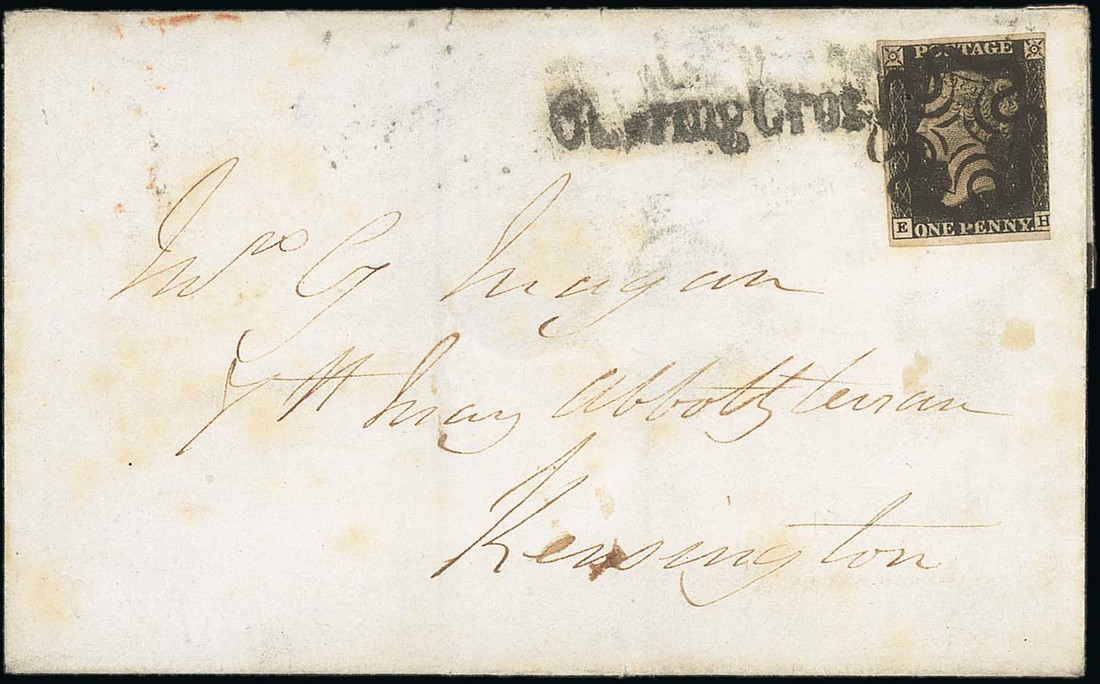 POSTAGE
Charing Cross
E ONE PENNY H
Mrs G Magan
7 St Mary Abbotts Terrace
Kensington